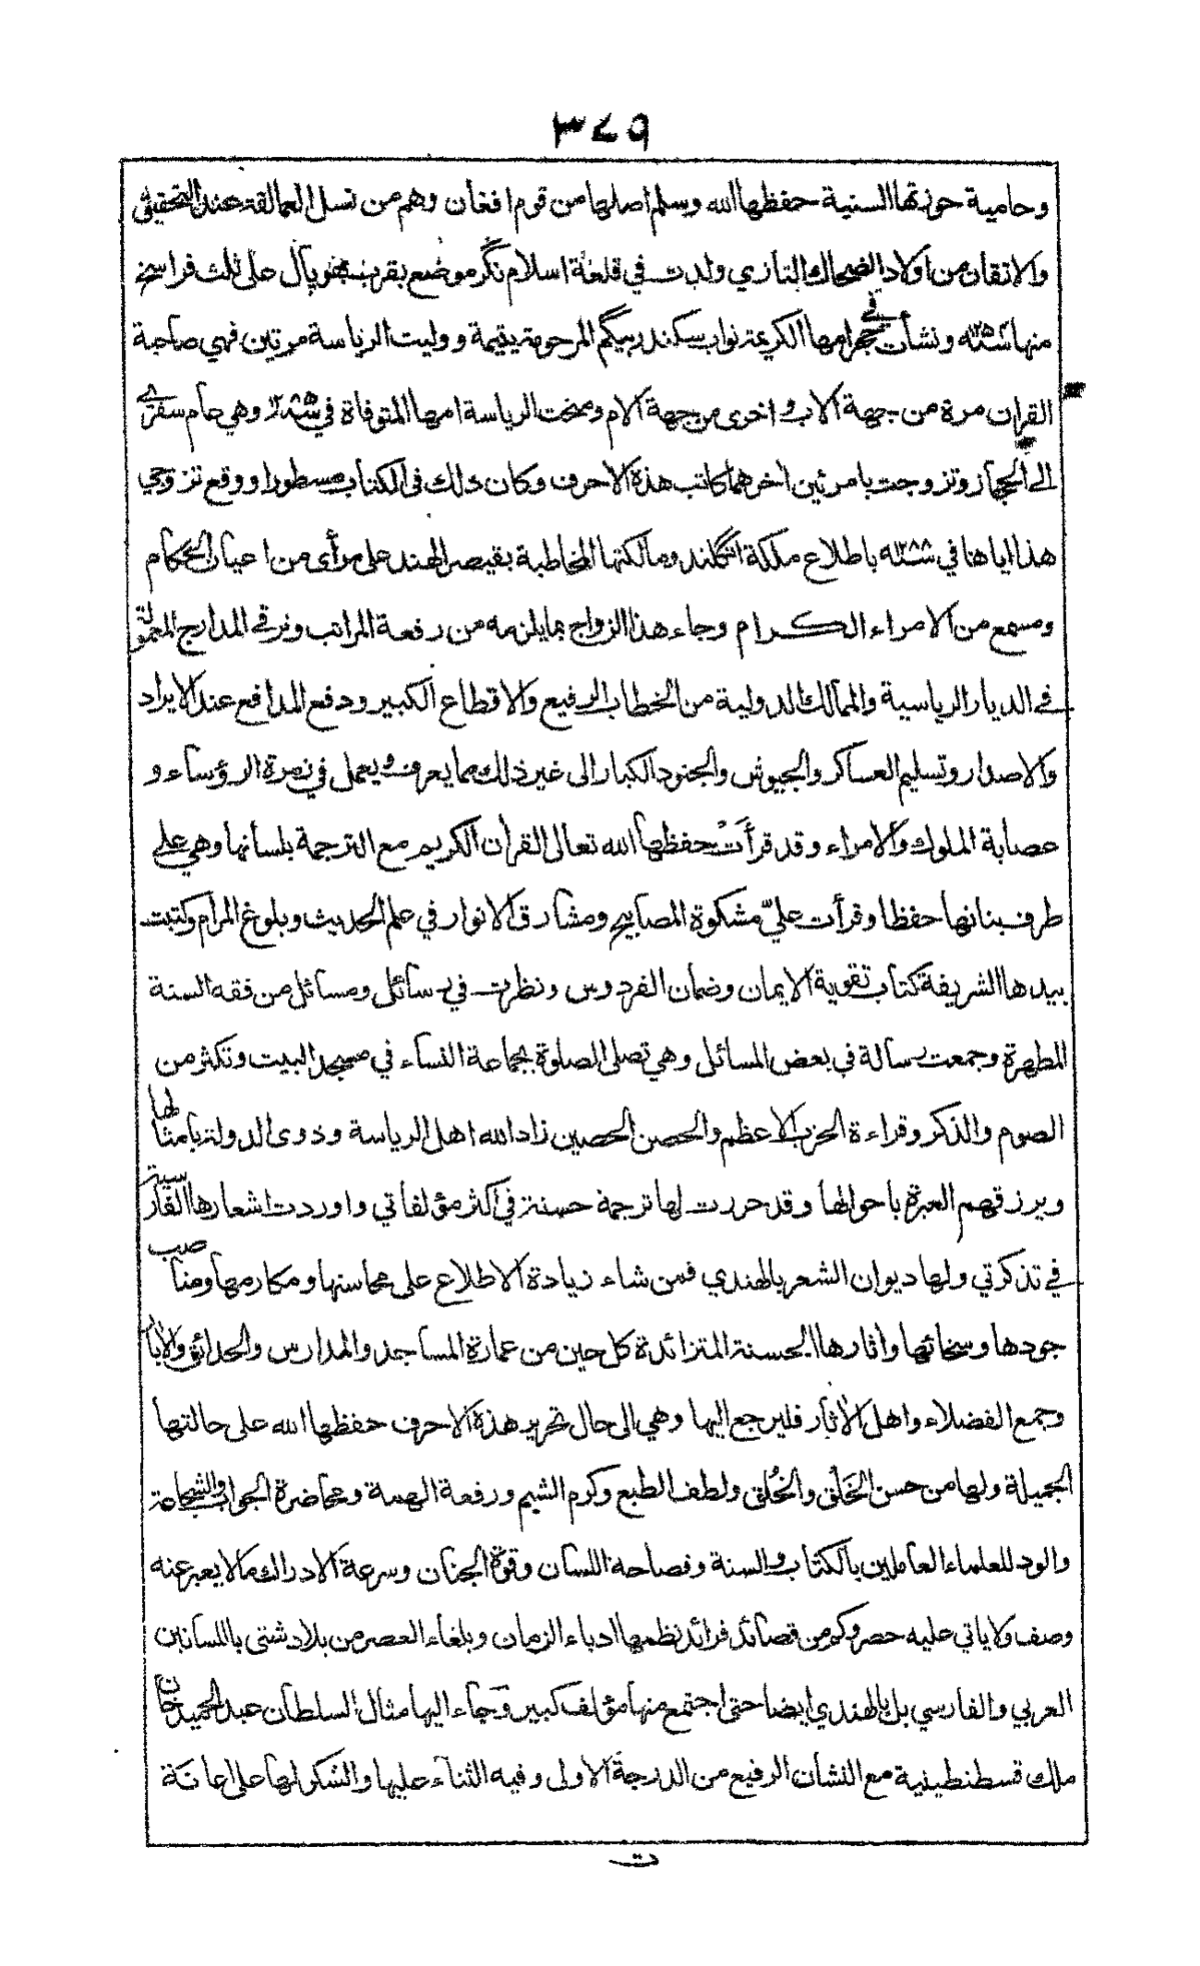 ٣٤٩
وحامية حوزتها السنية حفظها الله وسلم اصلها من قوم افغان وهم من نسل العمالقة عند التحقيق
والاتقان من اولاد الضحاك التازي ولدت في قلعة اسلام نگر موضع بقرب بهوپال على ثلث فراسخ
منها سنة ١٢٥٤ ونشأت في حجر امها الكريمة نواب سكندر بيگم المرحومة يتيمة ووليت الرياسة مرتين فهي صاحبة
القران مرة من جهة الاب واخرى من جهة الام ومنحت الرياسة امها المتوفاة في سنة ١٢٨٥ وهي عام سفري
الى الحجاز وتزوجت بامرئين اخرهما كاتب هذه الاحرف وكان ذلك في الكتاب مسطورا ووقع تزوجي
هذا اياها في سنة ١٢٨٨ باطلاع ملكة انگلند ومالكتها المخاطبة بقيصر الهند على مرأى من اعيان الحكام
ومسمع من الامراء الكرام وجاء هذا الزواج بما يلزمه من رفعة المراتب وترقي المدارج المعمولة
في الديار الرياسية والممالك الدولية من الخطاب الرفيع والاقطاع الكبير ودفع المدافع عند الايراد
والاصدار وتسليم العساكر والجيوش والجنود الكبار الى غير ذلك مما يعرف ويعمل في زمرة الرؤساء و
عصابة الملوك والامراء وقد قرأت حفظها الله تعالى القران الكريم مع الترجمة بلسانها وهي على
طرف بنانها حفظا وقرأت عليّ مشكوة المصابيح ومشارق الانوار في علم الحديث وبلوغ المرام وكتبت
بيدها الشريفة كتاب تقوية الايمان وضمان الفردوس ونظرت في رسائل ومسائل من فقه السنة
المطهرة وجمعت رسالة في بعض المسائل وهي تصلى الصلوة بجماعة النساء في مسجد البيت وتكثر من
الصوم والذكر وقراءة الحزب الاعظم والحصن الحصين زاد الله اهل الرياسة وذوى الدولة بامثالها
ويرزقهم العبرة باحوالها وقد حررت لها ترجمة حسنة في اكثر مؤلفاتي واوردت اشعارها الفارسية
في تذكرتي ولها ديوان الشعر بالهندي فمن شاء زيادة الاطلاع على محاسنها ومكارمها ومناصب
جودها وسخائها واثارها الحسنة المتزائدة كل حين من عمارة المساجد والمدارس والحدائق والابار
وجمع الفضلاء واهل الاثار فليرجع اليها وهي الى حال تحرير هذه الاحرف حفظها الله على حالتها
الجميلة ولها من حسن الخَلْق والخُلق ولطف الطبع وكرم الشيم ورفعة الهمة ومحاضرة الجواب والشجاعة
والود للعلماء العاملين بالكتاب والسنة وفصاحة اللسان وقوة الجنان وسرعة الادراك ما لا يعبر عنه
وصف ولا ياتي عليه حصر وكم من قصائد فرائد نظمها ادباء الزمان وبلغاء العصر من بلاد شتى باللسانين
العربي والفارسي بل بالهندي ايضا حتى اجتمع منها مؤلف كبير وجاء اليها مثال السلطان عبد الحميد خان
ملك قسطنطينية مع النشان الرفيع من الدرجة الاولى وفيه الثناء عليها والشكر لها على اعانة
ت